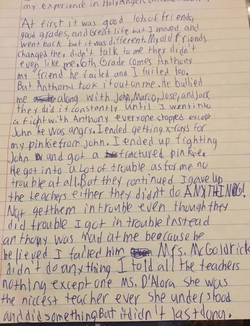 my experience in Holy Angels
At first it was good lots of friends,
good grades, and Great life but I moved and
went back but it was different. My old friends
changed they didn't talk to me they didn't
even like me. 6th Grade comes Anthony
my friend he failed and I failed too.
But Anthony took it out on me. He bullied
me along with John, Marco, Jose, and Jack
they did it constantly. Until I went into
a fight with Anthony everyone stopped except
John he was angry. I ended getting x-rays for
my pinkie from John. I ended up fighting
John and got a fractured pinkie.
He got into a lot of trouble as for me no
trouble at all. But they continued I gave up
the teachers either they didn't do ANYTHING!
Not get them in trouble even though they
did trouble I got in trouble Instead
anthony was mad at me because he
believed I failed him Mrs. McGoldrick
didn't do anything I told all the teachers
nothing except one Ms. D'Nora She was
the nicest teacher ever she understood
and did something but it didn't last long.